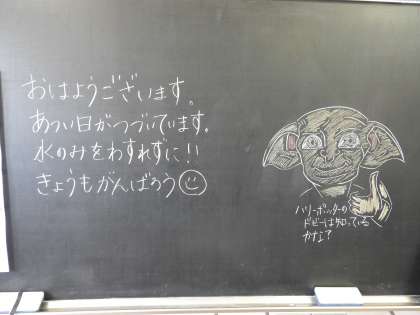 おはようございます。
あつい日がつづいています。
水のみをわすれずに!!
きょうもがんばろう
ハリーポッターの
ドビーは知っている
かな?